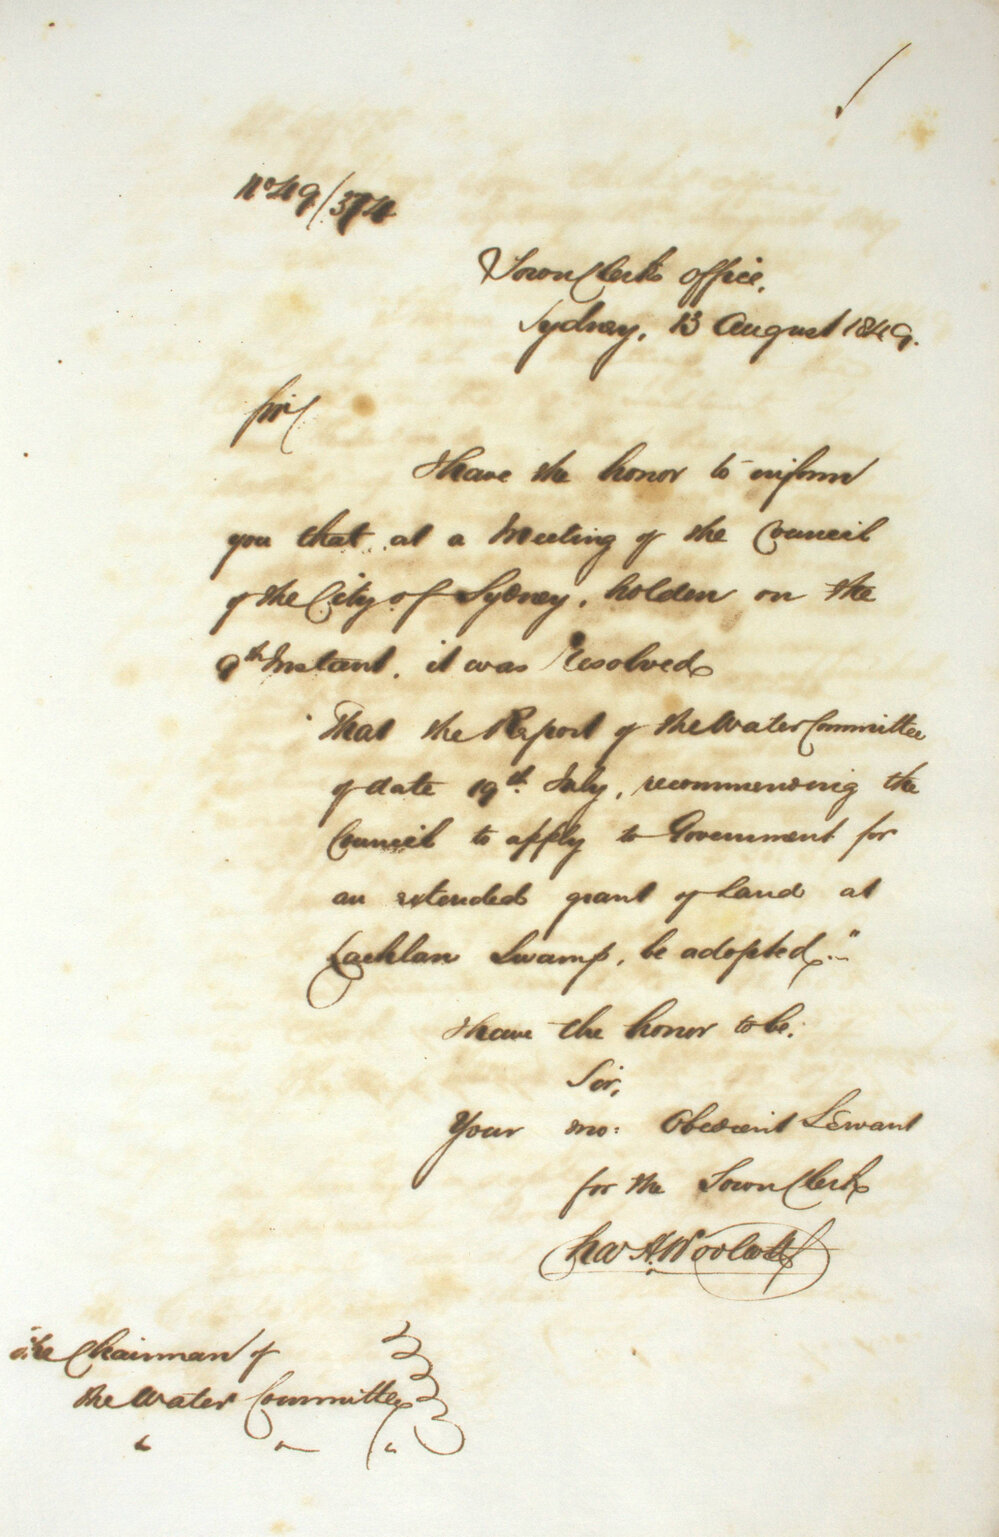 No 49/374
Town Clerk's Office,
Sydney, 13 August 1849.
Sir,
I have the honor to inform
you that at a Meeting of the Council
of the City of Sydney, holden on the
9th Instant, it was Resolved
"That the Report of the Water Committee
of date 19th July, recommending the
Council to apply to Government for
an extended grant of Land at
Lachlan Swamp, be adopted."
I have the honor to be,
Sir,
Your mo: Obedient Servant
for the Town Clerk
Chas H. Woolcott
The Chairman of
the Water Committee
" " "